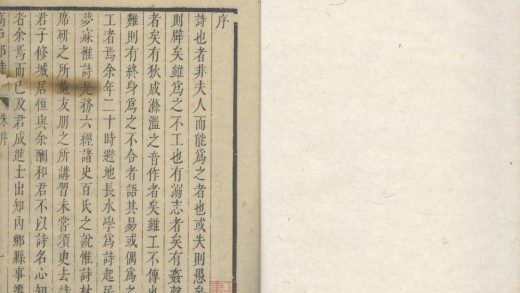 序
詩也者非夫人而能爲之者也或失則愚矣
則辟矣雖爲之不工也有溺志者矣有姦聲
者矣有狄成滌濫之音作者矣雖工不傳也
難則有終身爲之不合者語其易或偶爲之
工者焉余年二十時避地長水學爲詩起居
夢寐惟詩是務六經諸史百氏之說惟詩材
席研之所施友朋之所講習未嘗須臾去詩
君子修城居恆與余酬和君不以詩名心知
者余焉而已及君成進士出知內鄉縣事